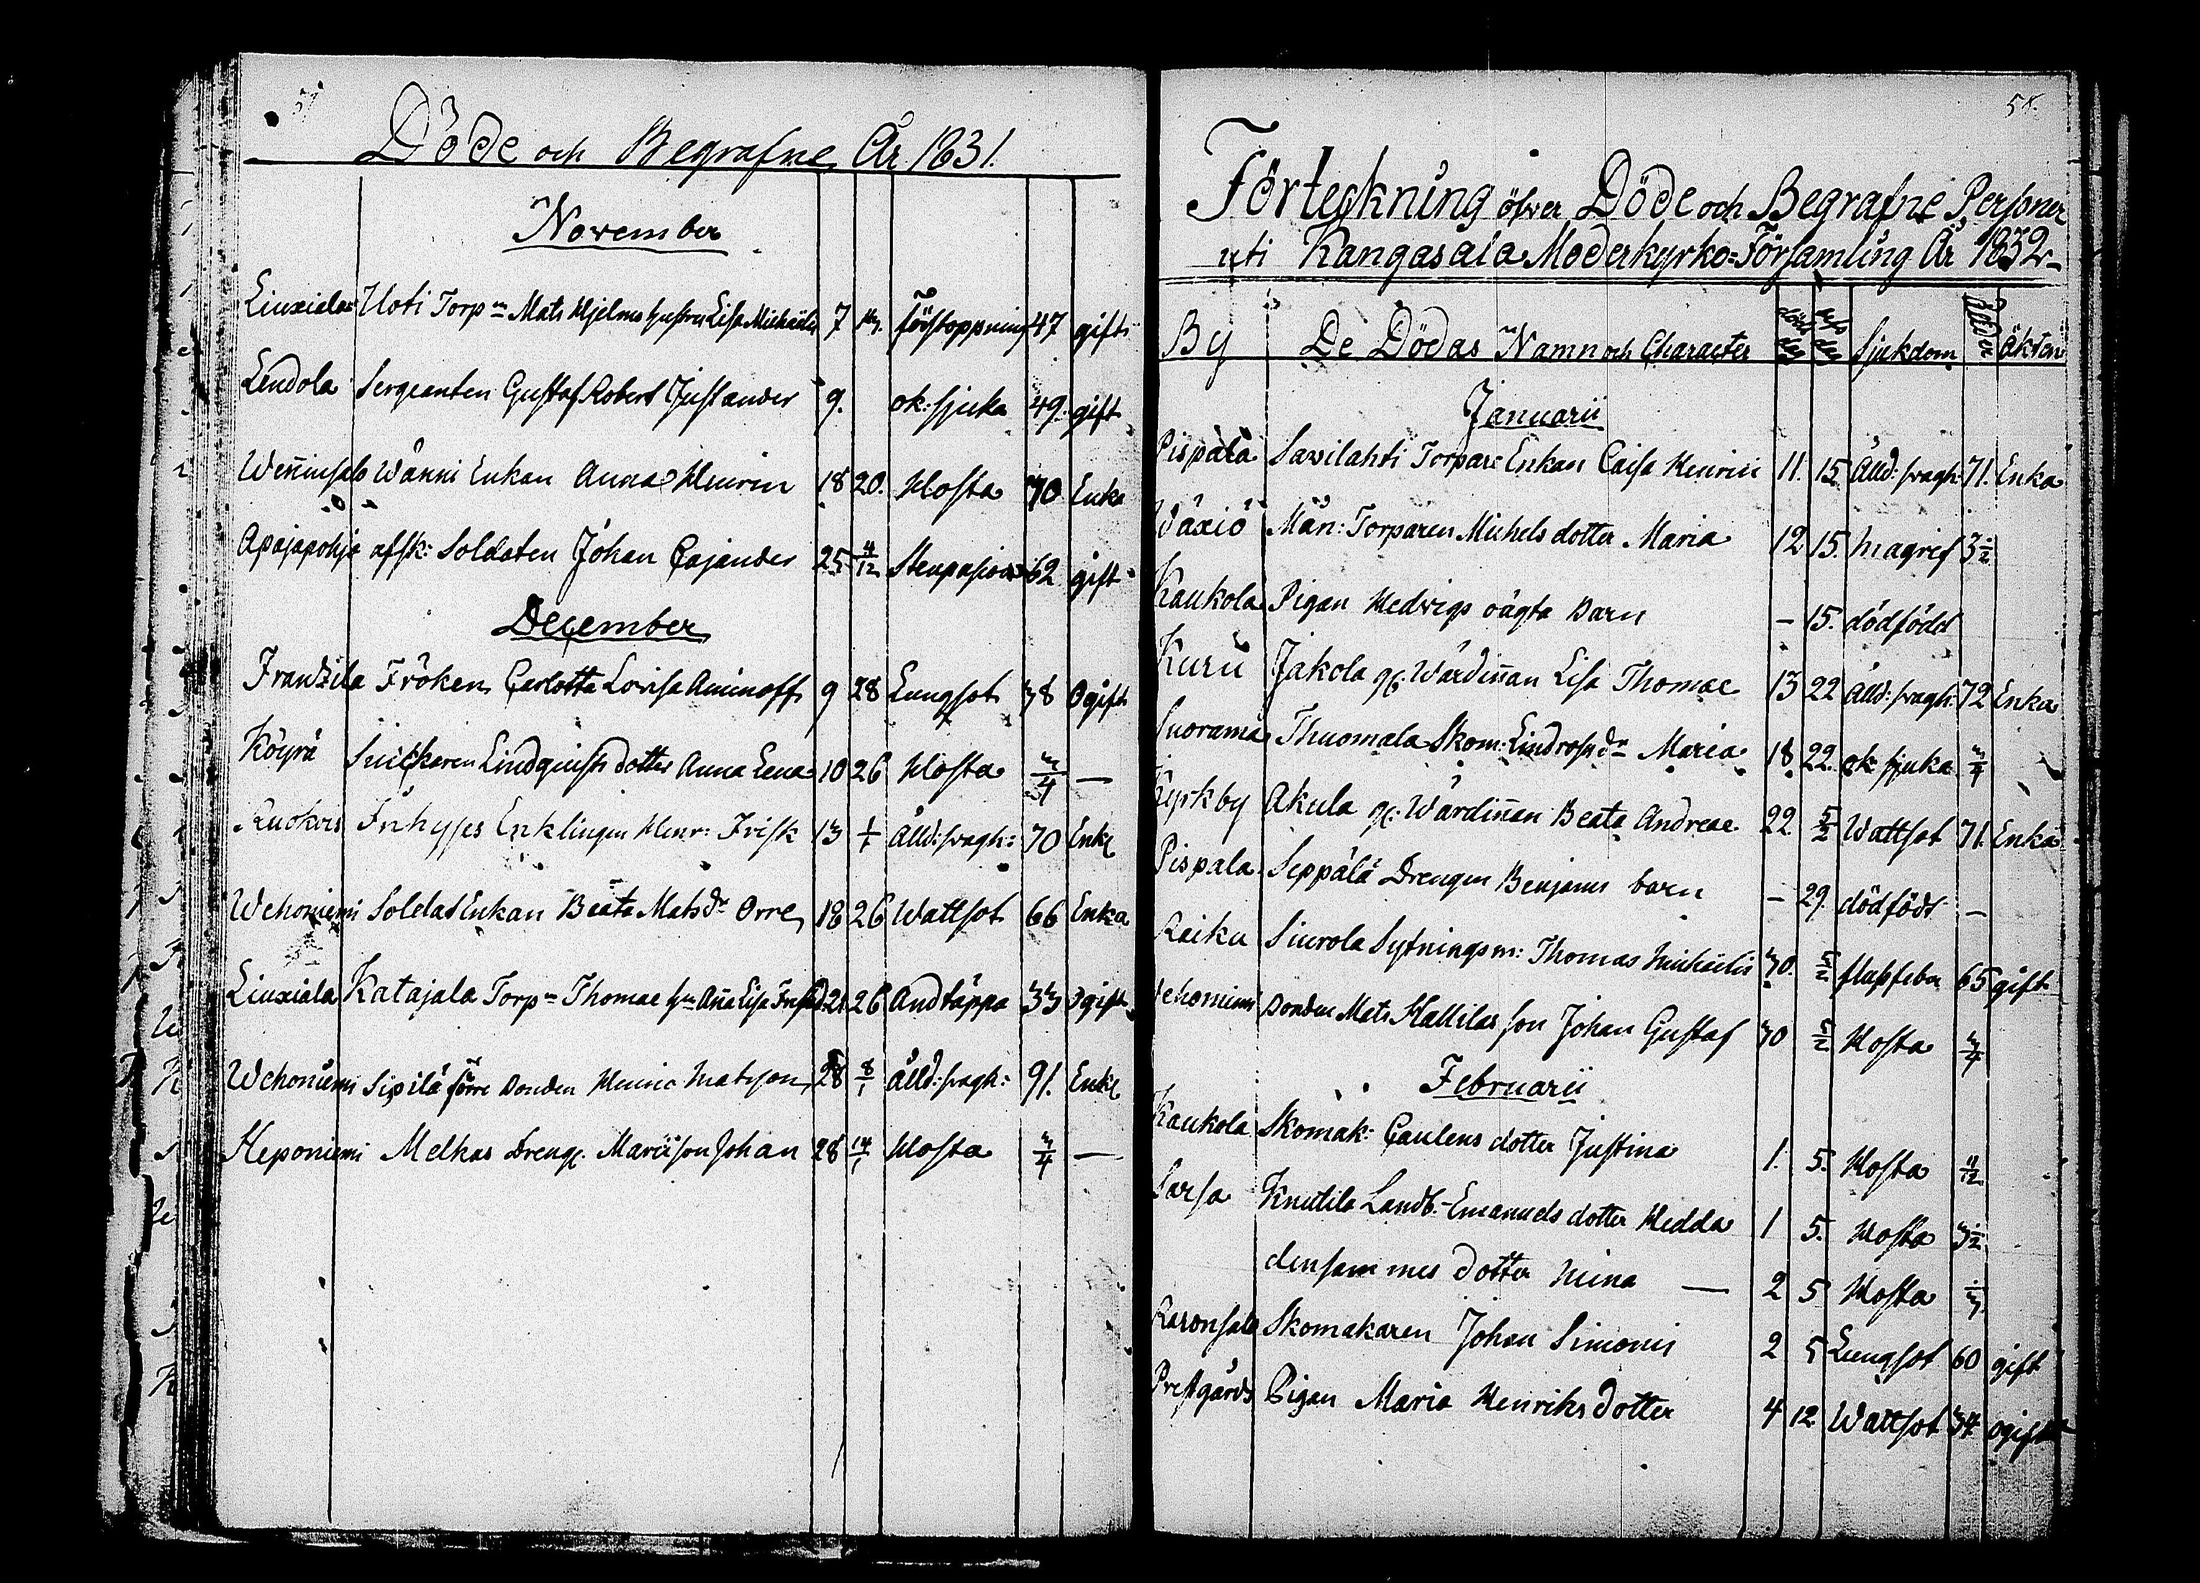 57
Döde och Begrafne År 1831.
November
Liuxiala Uoti Torp:n Mats Hjelms hustru Lisa Michaelis 7 förstoppning 47 gift
Lendola Sergeanten Gustaf Robert Justander 9. ok: sjuka 49. gift
Wenninsalo Wänni Enkan Anna Henrici 18 20. Hosta 70 Enka
Apajapohja afsk: Soldaten Johan Cajander 25 4/12 Stenpasion 62 gift
December
Frantzila Fröken Carlotta Lovisa Aminoff 9 28 Lungsot 38 Ogift
Köyrä Snickaren Lindquists dotter Anna Lena 10 26 Hosta 3/4 —
Ruokois Inhyses Enklingen Henr: Frisk 13 1/1 Ålld: svagh: 70 Enkl
Wehoniemi Soldat Enkan Beata Matsd:r Orre 18 26 Wattsot 66 Enka
Liuxiala Katajala Torp:n Thomae Anna Lisa 21 26 Andtäppa 33 Ogift
Wehoniemi Sipilä förre Bonden Henric Matsson 28 8/1 ålld: svagh: 91. Enkl
Heponiemi Melkas Dreng: Marii son Johan 28 Hosta 3/4 —
58.
Förteckning öfwer Döde och Begrafne Personer
uti Kangasala Moderkyrko=Församling År 1832
By De Dödas Namn och Character Sjukdom ålder äkten
Januarii
Pispala Savilahti Torpare Enkan Caisa Henrici 11. 15 Ålld: svagh: 71. Enka
Wäxiö Män: Torparen Michels dotter Maria 12 15. magref 3 1/2
Kaukola Pigan Hedvigs oägta Barn — 15. dödfödd
Kuru Jakola gl: Wärdinnan Lisa Thomae 13 22 Ålld: svagh: 72 Enka
Suorama Thuomala Skom: Lindros d:r Maria 18 22. ok sjuka 3/4
Kyrkby Akula gl: Wärdinnan Beata Andreae 22 5/2 Wattsot 71. Enka
Pispala Seppälä Drengen Benjamins barn — 29. dödfödt —
Raiku Siurola Sytningsm: Thomas Michaelis 30. 5/2 flussfeber 65 gift
Wehoniemi Bonden Mats Kallilas son Johan Gustaf 30 5/2 Hosta 3/4
Februarii
Kaukola Skomak: Gaulens dotter Justina 1. 5. Hosta 11/12
Sarsa Knutila Landb:- Emanuels dotter Hedda 1 5. Hosta 3 1/2
densammes dotter Mina — 2 5 Hosta
Raronsalo Skomakaren Johan Simonis 2 5 Lungsot 60 gift
Prestgårds Pigan Maria Henriks dotter 4 12 Wattsot 34 ogift